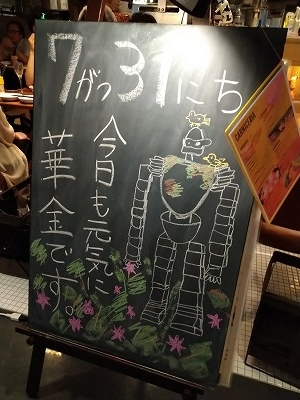 7がつ31にち
今日も元気に
華金です。